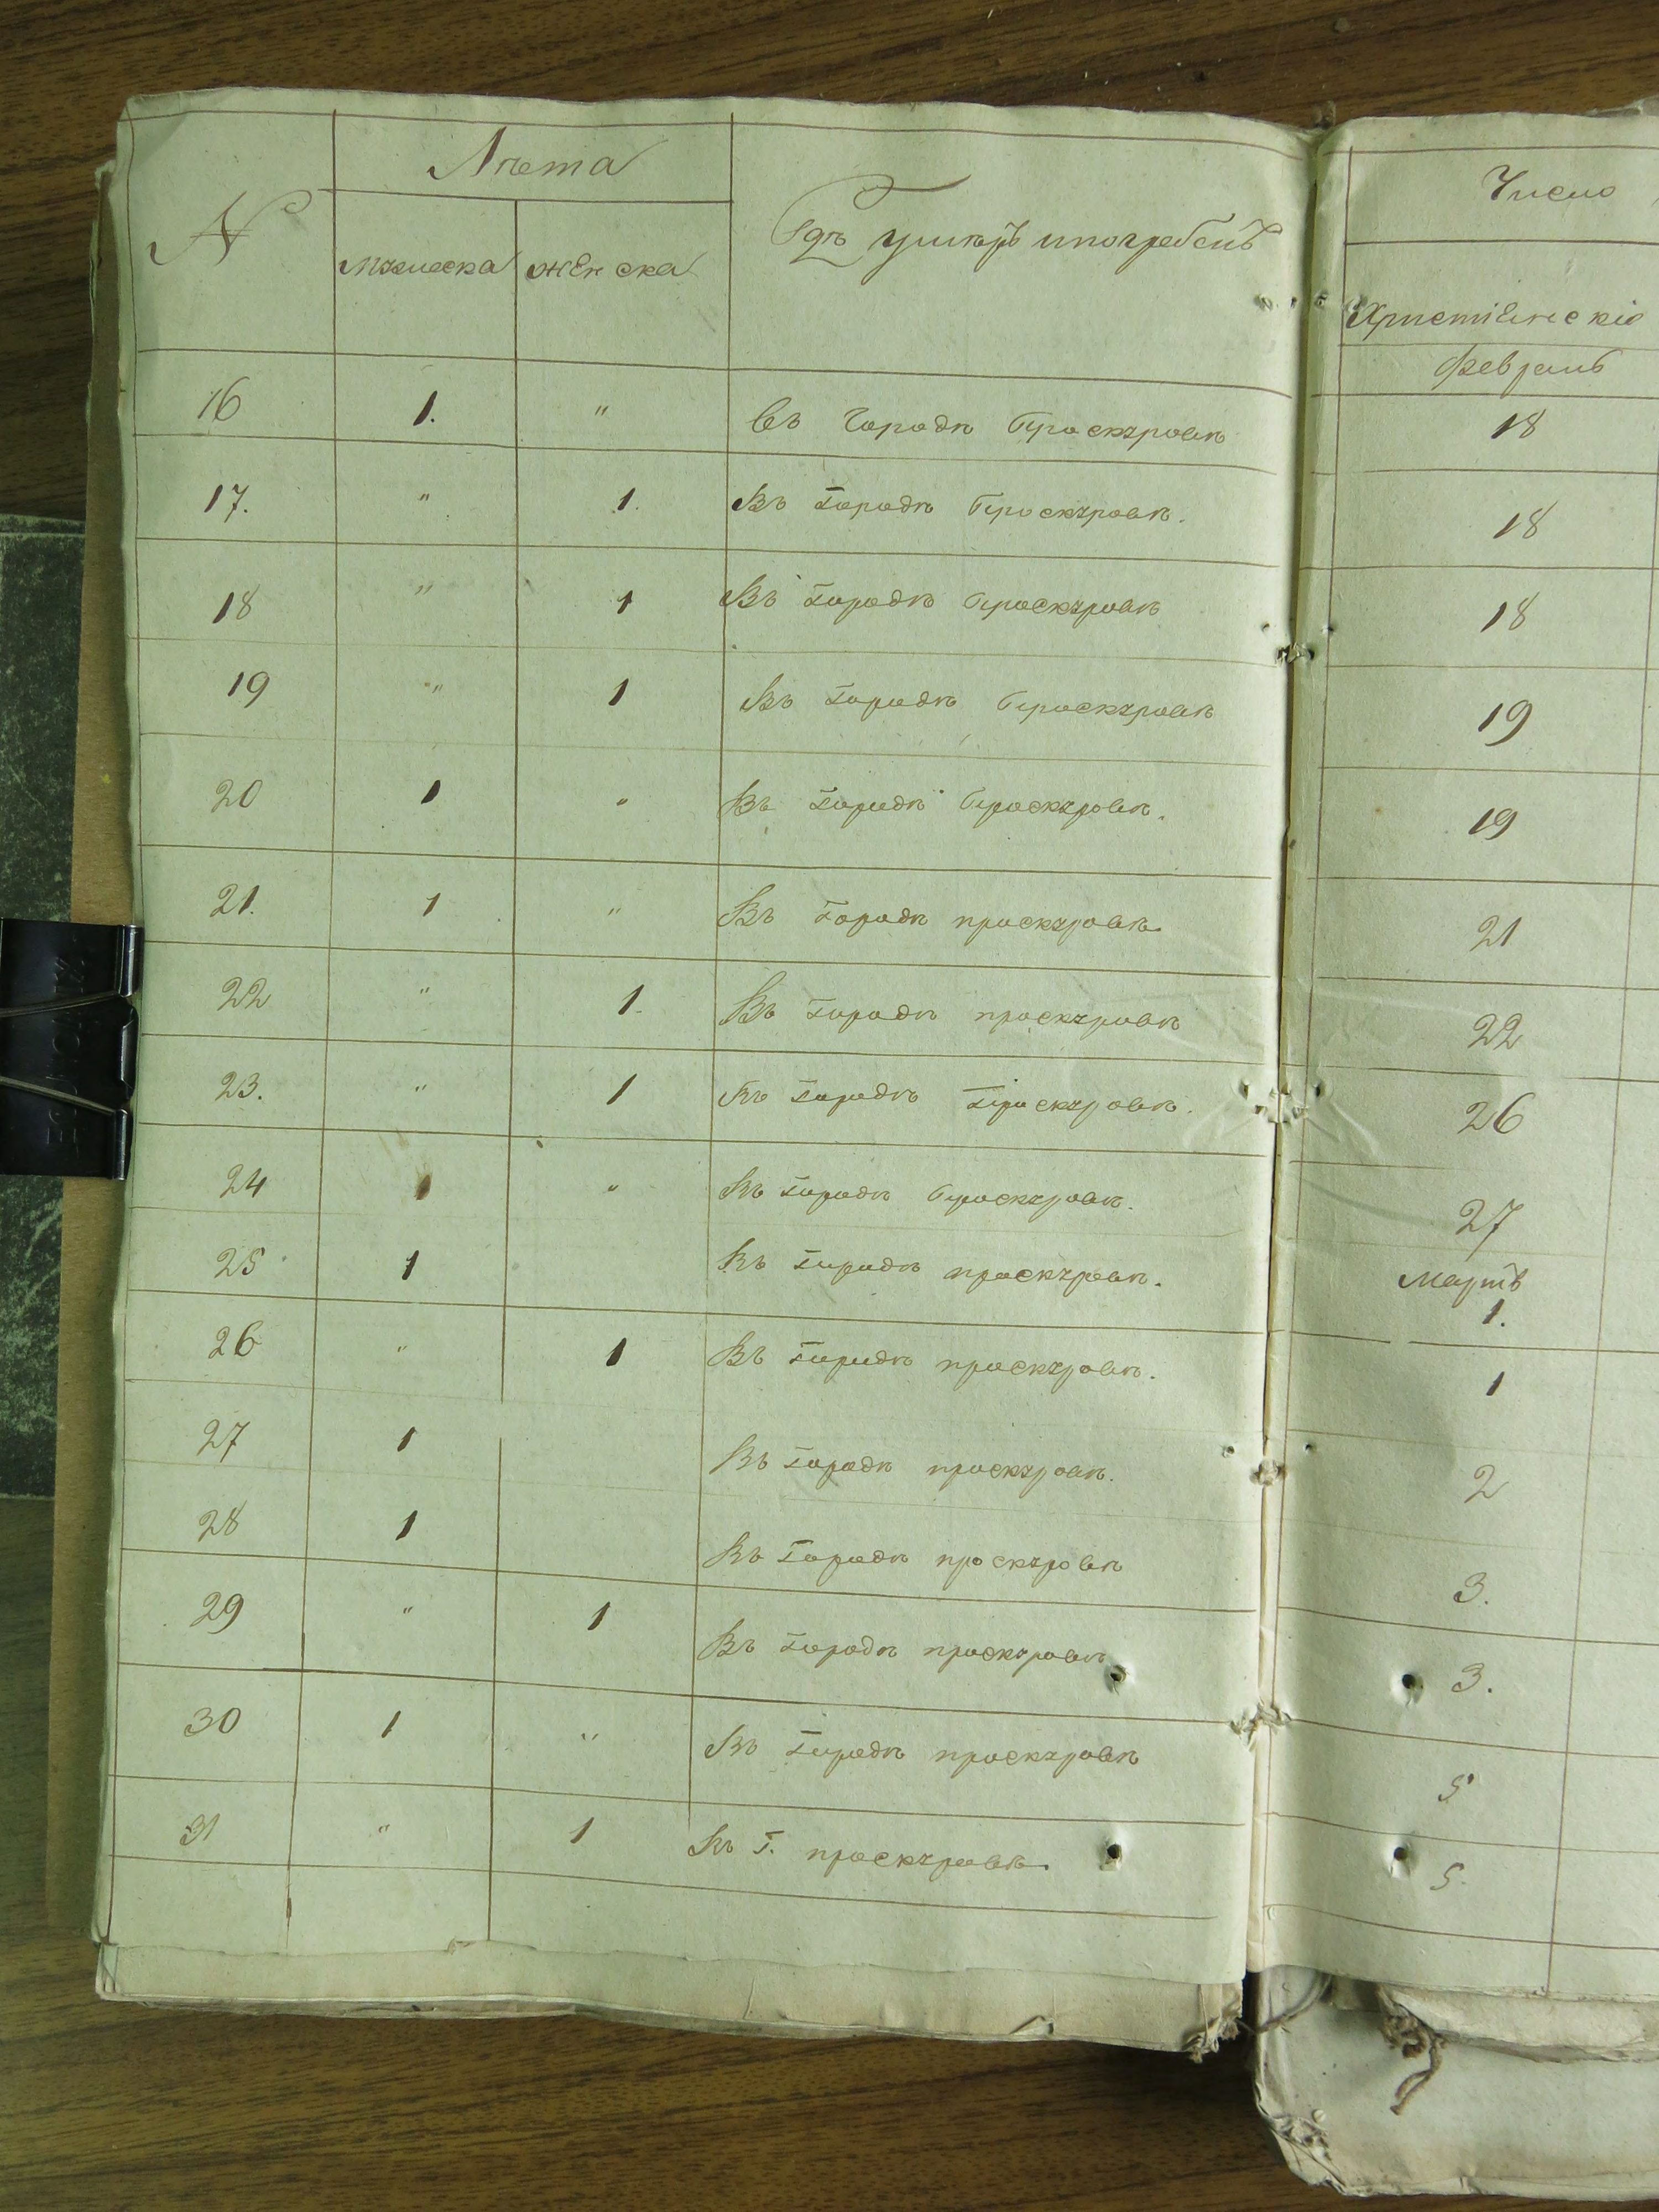 № Лѣта Гдѣ умеръ и погребенъ Число
мужеска женска Христіянскіе
Февраль
16 1. " Въ Городѣ Проскуровѣ 18
17. " 1. Въ Городѣ Проскуровѣ. 18
18 " 1 Въ Городѣ Проскуровѣ 18
19 " 1 Въ Городѣ Проскуровѣ 19
20 1 " Въ Городѣ Проскуровѣ. 19
21. 1 " Въ Городѣ проскуровѣ. 21
22 " 1. Въ Городѣ проскуровѣ 22
23. " 1 Въ Городѣ Проскуровѣ. 26
24 1 " Въ Городѣ Проскуровѣ. 27
Мартъ
25 1 Въ Городѣ проскуровѣ. 1.
26 " 1 Въ Городѣ проскуровѣ. 1
27 1 Въ Городѣ проскуровѣ. 2
28 1 Въ Городѣ проскуровѣ 3.
29 " 1 Въ Городѣ проскуровѣ 3.
30 1 " Въ Городѣ проскуровѣ 5
31 " 1 Въ Г. проскуровѣ. 5.